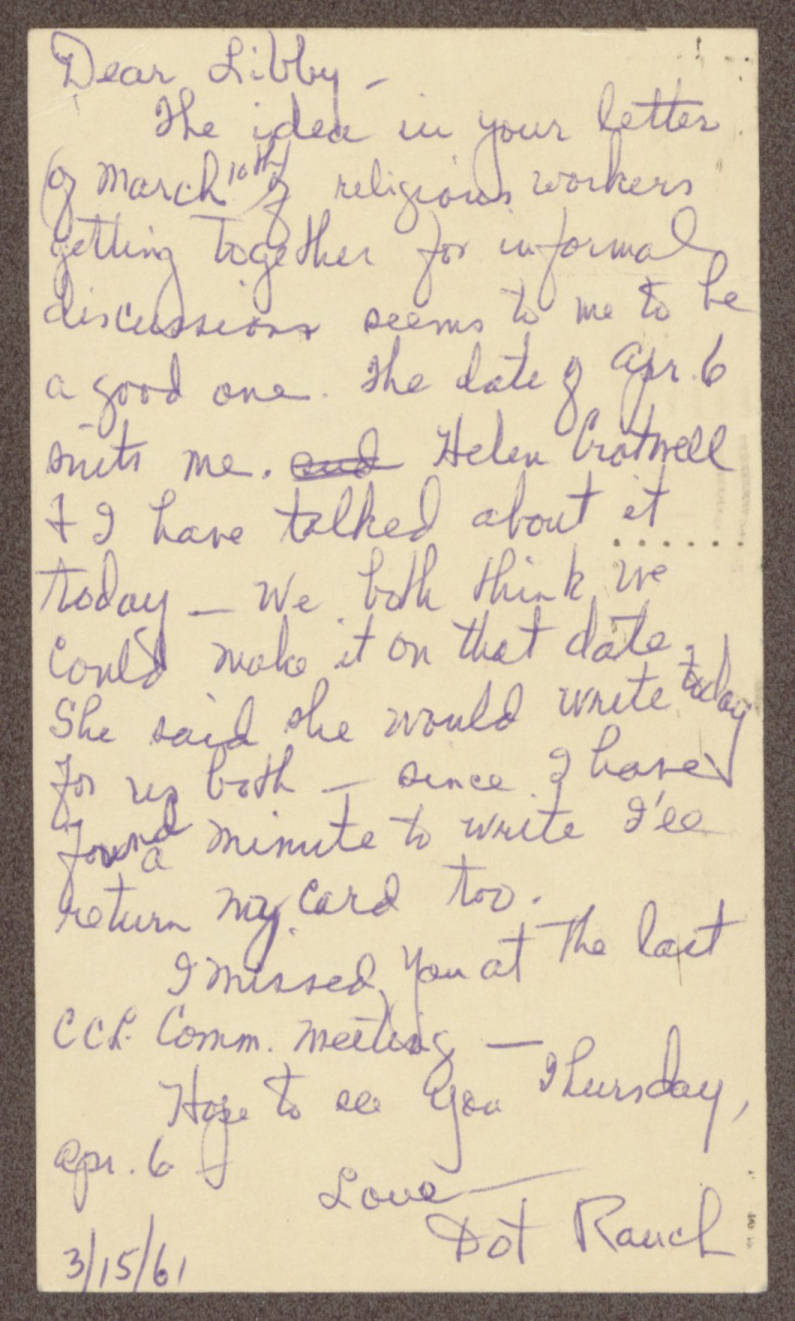 Dear Libby –
The idea in your letter
of March 10th of religious workers
getting together for informal
discussions seems to me to be
a good one. The date of Apr. 6
suits me. and Helen Crotwell
& I have talked about it
today – We both think we
could make it on that date.
She said she would write today
for us both – since I have
found a minute to write I'll
return my card too.
I missed you at the last
CCL Comm. meeting –
Hope to see you Thursday,
Apr. 6
Love –
Dot Rauch
3/15/61